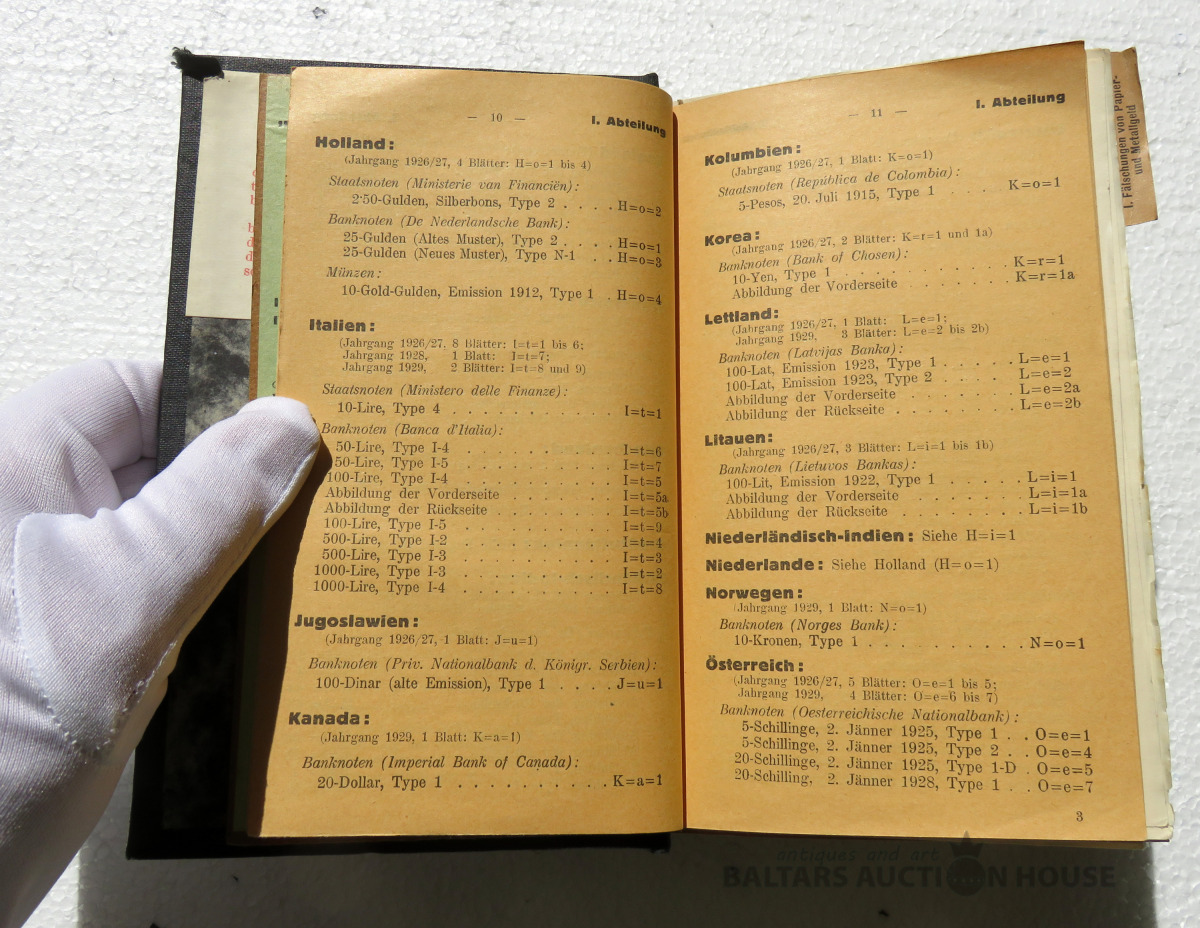 — 10 —
I. Abteilung
Holland:
(Jahrgang 1926/27, 4 Blätter: H=o=1 bis 4)
Staatsnoten (Ministerie van Financiën):
2·50-Gulden, Silberbons, Type 2 . . . . H=o=2
Banknoten (De Nederlandsche Bank):
25-Gulden (Altes Muster), Type 2 . . . . H=o=1
25-Gulden (Neues Muster), Type N-1 . . H=o=3
Münzen:
10-Gold-Gulden, Emission 1912, Type 1 . H=o=4
Italien:
(Jahrgang 1926/27, 8 Blätter: I=t=1 bis 6;
Jahrgang 1928, 1 Blatt: I=t=7;
Jahrgang 1929, 2 Blätter: I=t=8 und 9)
Staatsnoten (Ministero delle Finanze):
10-Lire, Type 4 . . . . . . . . . . . I=t=1
Banknoten (Banca d'Italia):
50-Lire, Type I-4 . . . . . . . . . . I=t=6
50-Lire, Type I-5 . . . . . . . . . . I=t=7
100-Lire, Type I-4 . . . . . . . . . . I=t=5
Abbildung der Vorderseite . . . . . . . I=t=5a
Abbildung der Rückseite . . . . . . . . I=t=5b
100-Lire, Type I-5 . . . . . . . . . . I=t=9
500-Lire, Type I-2 . . . . . . . . . . I=t=4
500-Lire, Type I-3 . . . . . . . . . . I=t=3
1000-Lire, Type I-3 . . . . . . . . . . I=t=2
1000-Lire, Type I-4 . . . . . . . . . . I=t=8
Jugoslawien:
(Jahrgang 1926/27, 1 Blatt: J=u=1)
Banknoten (Priv. Nationalbank d. Königr. Serbien):
100-Dinar (alte Emission), Type 1 . . . . J=u=1
Kanada:
(Jahrgang 1929, 1 Blatt: K=a=1)
Banknoten (Imperial Bank of Canada):
20-Dollar, Type 1 . . . . . . . . . . K=a=1
— 11 —
I. Abteilung
Kolumbien:
(Jahrgang 1926/27, 1 Blatt: K=o=1)
Staatsnoten (República de Colombia):
5-Pesos, 20. Juli 1915, Type 1 . . . . K=o=1
Korea:
(Jahrgang 1926/27, 2 Blätter: K=r=1 und 1a)
Banknoten (Bank of Chosen):
10-Yen, Type 1 . . . . . . . . . . . K=r=1
Abbildung der Vorderseite . . . . . . . K=r=1a
Lettland:
(Jahrgang 1926/27, 1 Blatt: L=e=1;
Jahrgang 1929, 3 Blätter: L=e=2 bis 2b)
Banknoten (Latvijas Banka):
100-Lat, Emission 1923, Type 1 . . . . . L=e=1
100-Lat, Emission 1923, Type 2 . . . . . L=e=2
Abbildung der Vorderseite . . . . . . . L=e=2a
Abbildung der Rückseite . . . . . . . . L=e=2b
Litauen:
(Jahrgang 1926/27, 3 Blätter: L=i=1 bis 1b)
Banknoten (Lietuvos Bankas):
100-Lit, Emission 1922, Type 1 . . . . . L=i=1
Abbildung der Vorderseite . . . . . . . L=i=1a
Abbildung der Rückseite . . . . . . . . L=i=1b
Niederländisch-Indien: Siehe H=i=1
Niederlande: Siehe Holland (H=o=1)
Norwegen:
(Jahrgang 1929, 1 Blatt: N=o=1)
Banknoten (Norges Bank):
10-Kronen, Type 1 . . . . . . . . . . N=o=1
Österreich:
(Jahrgang 1926/27, 5 Blätter: O=e=1 bis 5;
Jahrgang 1929, 4 Blätter: O=e=6 bis 7)
Banknoten (Oesterreichische Nationalbank):
5-Schillinge, 2. Jänner 1925, Type 1 . . O=e=1
5-Schillinge, 2. Jänner 1925, Type 2 . . O=e=4
20-Schillinge, 2. Jänner 1925, Type 1-D . O=e=5
20-Schilling, 2. Jänner 1928, Type 1 . . O=e=7
3
I. Fälschungen von Papier-
und Metallgeld
antiques and art
BALTARS AUCTION HOUSE